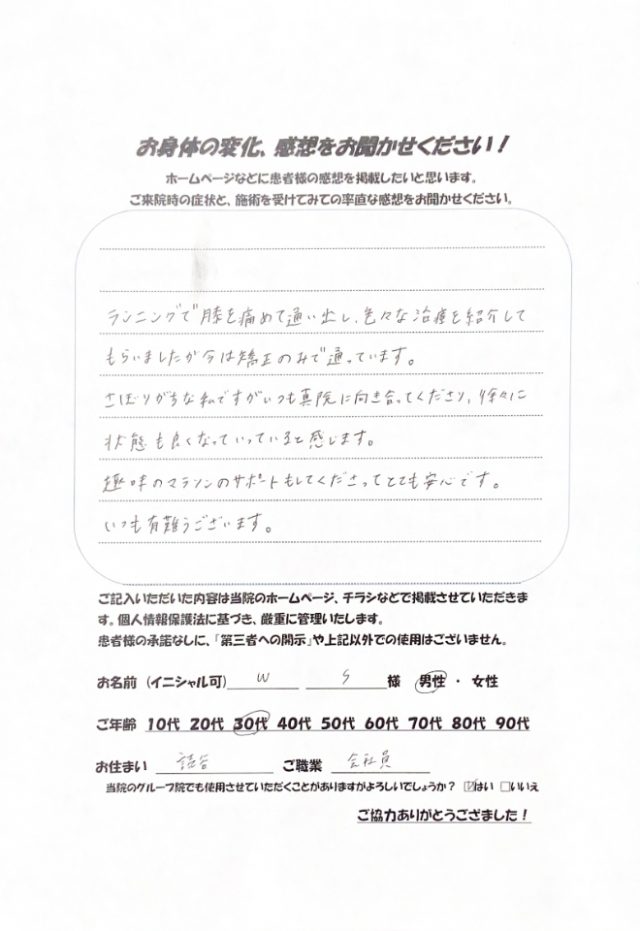 お身体の変化、感想をお聞かせください！
ホームページなどに患者様の感想を掲載したいと思います。
ご来院時の症状と、施術を受けてみての率直な感想をお聞かせください。
ランニングで膝を痛めて通い出し、色々な治療を紹介して
もらいましたが今は矯正のみで通っています。
さぼりがちな私ですがいつも真院に向き合ってくださり、徐々に
状態も良くなっていっていると感じます。
趣味のマラソンのサポートもしてくださってとても安心です。
いつも有難うございます。
ご記入いただいた内容は当院のホームページ、チラシなどで掲載させていただきま
す。個人情報保護法に基づき、厳重に管理いたします。
患者様の承諾なしに、「第三者への開示」や上記以外での使用はございません。
お名前（イニシャル可） W S 様 男性 ・ 女性
ご年齢 10代 20代 30代 40代 50代 60代 70代 80代 90代
お住まい ご職業 会社員
当院のグループ院でも使用させていただくことがありますがよろしいでしょうか？ ☑はい □いいえ
ご協力ありがとうござまました！